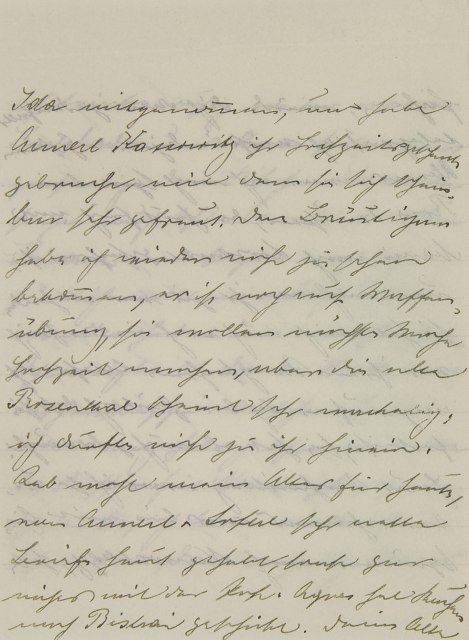 Ida mitgenommen, und habe
Annerl Kassowitz ihr Hochzeitsgeschenk
gebracht, mit dem sie sich schein-
bar sehr gefreut. Den Bräutigam
habe ich wieder nicht zu sehen
bekommen, er ist noch auf Waffen-
übung, sie wollen nächste Woche
Hochzeit machen, aber die alte
Rosenthal scheint sehr unruhig,
ich durfte nicht zu ihr hinein.
wohl mein Alles für heute,
von Annerl u. Soferl sehr nette
Briefe heut gehabt, sonst gar
nichts mit der Post. Agnes hat
nach Bistrai geschickt. Deine Alte